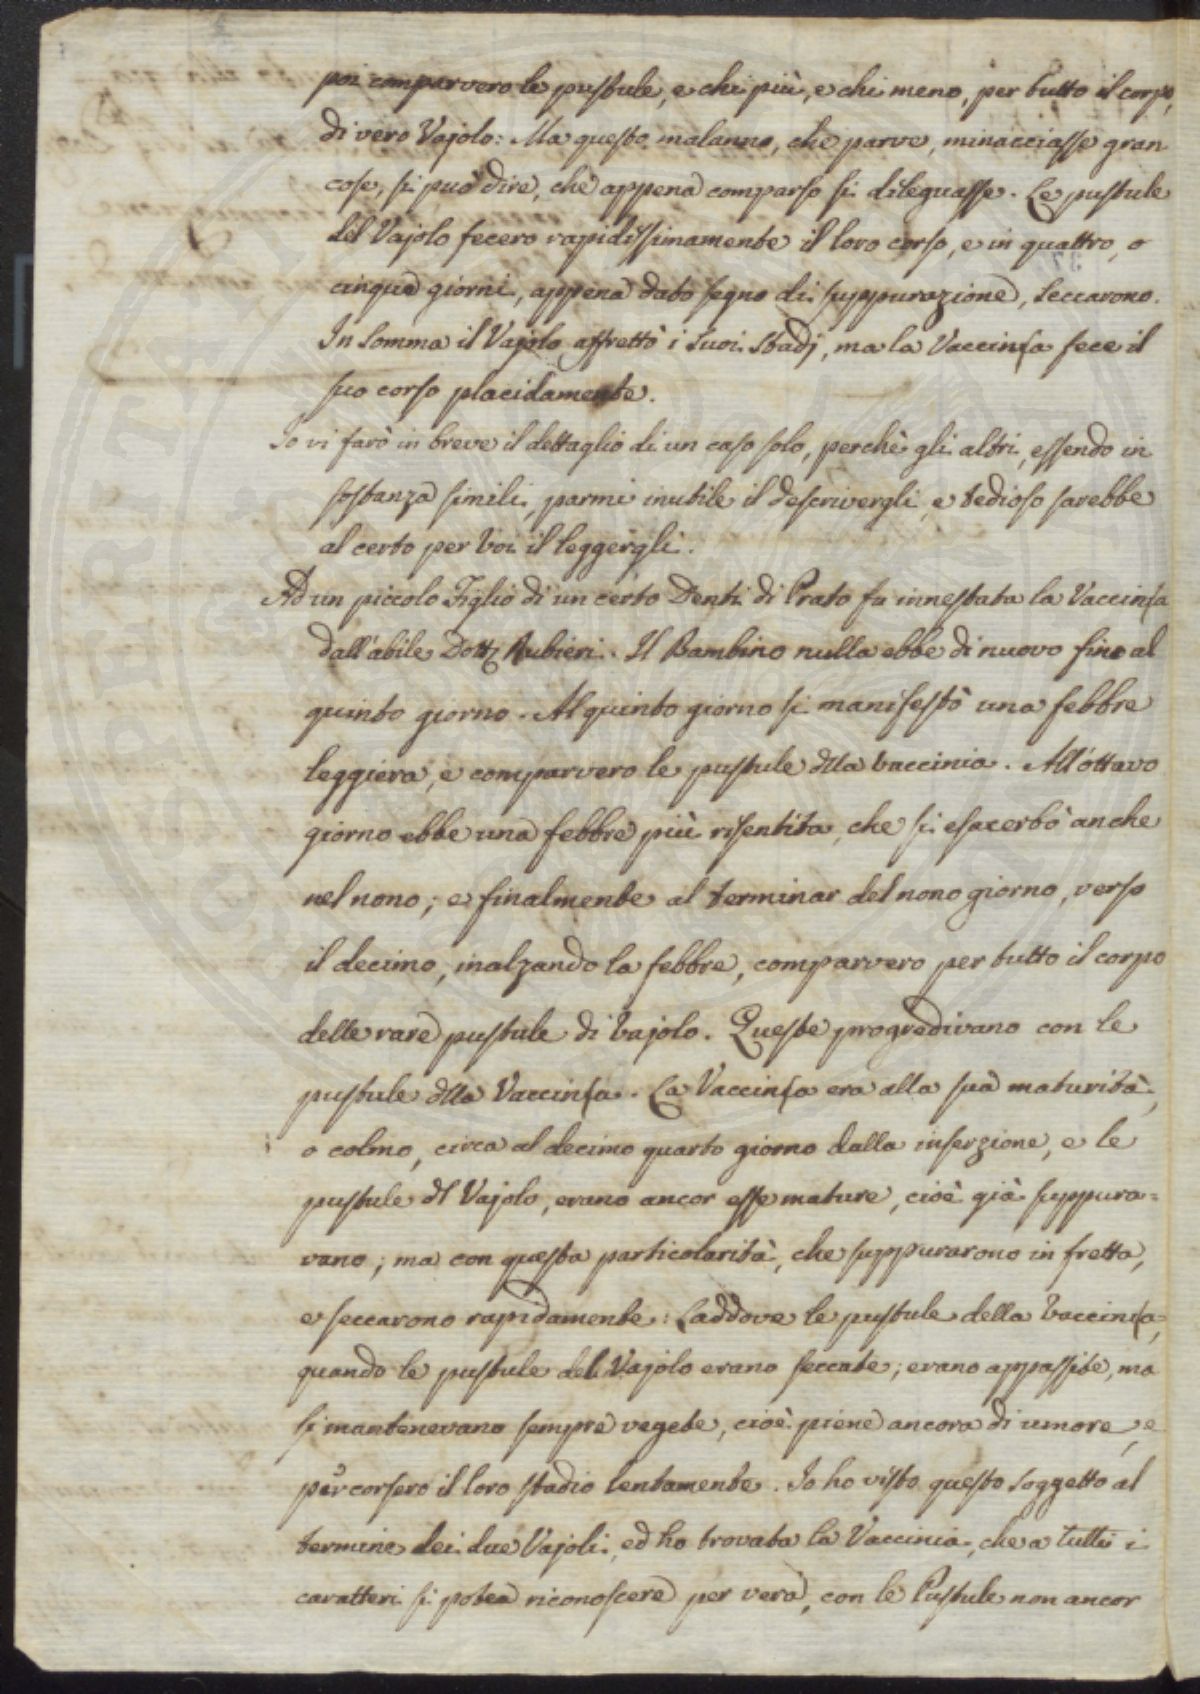 poi comparvero le pustule, e chi più, e chi meno, per tutto il corpo,
di vero Vajolo: Ma questo malanno, che parve, minacciasse gran
cose, si può dire, che appena comparso si dileguasse. Le pustule
del Vajolo fecero rapidissimamente il loro corso, e in quattro, o
cinque giorni, appena dato segno di suppurazione, seccarono.
In somma il Vajolo affrettò i suoi stadj, ma la Vaccinia fece il
suo corso placidamente.
Io vi farò in breve il dettaglio di un caso solo, perchè gli altri, essendo in
sostanza simili, parmi inutile il descrivergli, e tedioso sarebbe
al certo per Voi il leggergli.
Ad un piccolo Figlio di un certo Denti di Prato fu innestata la Vaccinia
dall'abile Dott. Rubieri. Il Bambino nulla ebbe di nuovo fino al
quinto giorno. Al quinto giorno si manifestò una febbre
leggiera, e comparvero le pustule dlla vaccinia. All'ottavo
giorno ebbe una febbre più risentita, che si esacerbò anche
nel nono; e finalmente al terminar del nono giorno, verso
il decimo, inalzando la febbre, comparvero per tutto il corpo
delle rare pustule di Vajolo. Queste progredivano con le
pustule dlla Vaccinia. La Vaccinia era alla sua maturità,
o colmo, circa al decimo quarto giorno dalla inserzione, e le
pustule dl Vajolo, erano ancor esse mature, cioè già suppura=
vano; ma con questa particolarità, che suppurarono in fretta,
e seccarono rapidamente: Laddove le pustule della Vaccinia,
quando le pustule del Vajolo erano seccate; erano appassite, ma
si mantenevano sempre vegete, cioè piene ancora di umore, e
percorsero il loro stadio lentamente. Io ho visto questo soggetto al
termine dei due Vajoli, ed ho trovata la Vaccinia, che a tutti i
caratteri si potea riconoscere per vera, con le Pustule non ancor